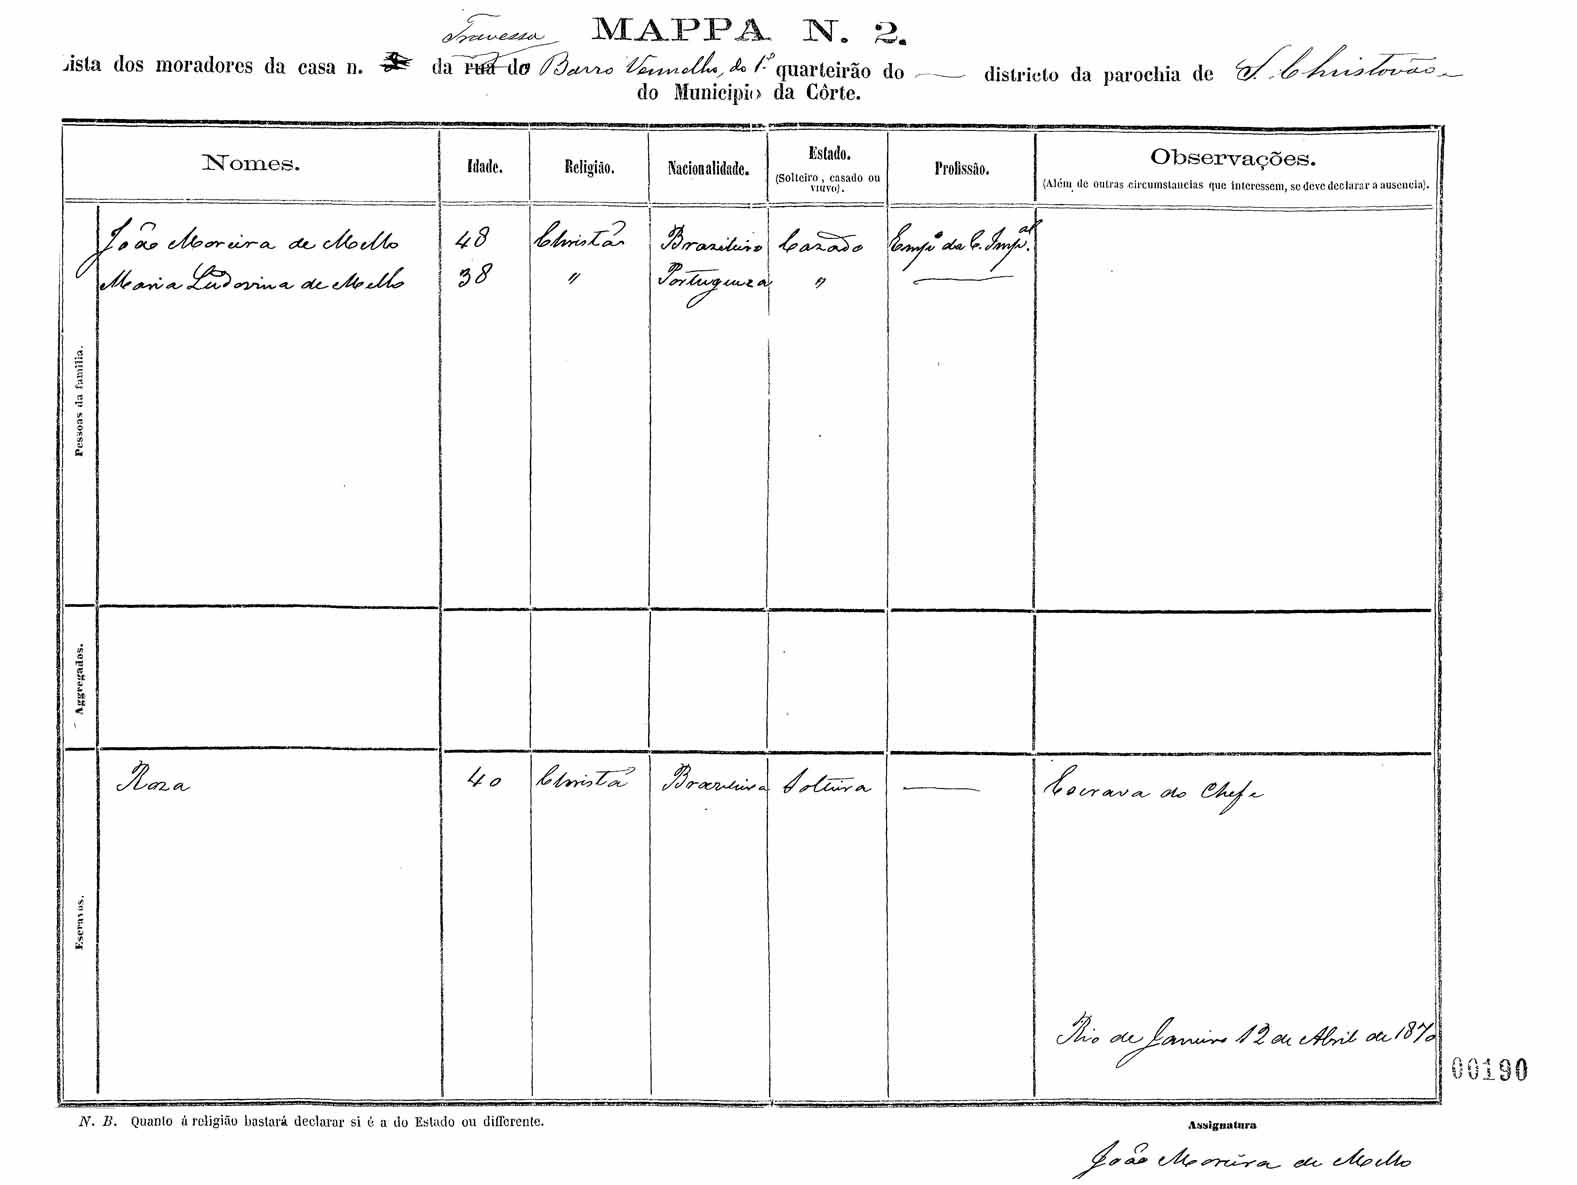 Travessa
MAPPA N. 2.
Lista dos moradores da casa n. da rua do Barro Vermelho, do 1.º quarteirão do — districto da parochia de S. Christovão
do Municipio da Côrte.
Nomes. Idade. Religião. Nacionalidade. Estado. (Solteiro, casado ou viuvo). Profissão. Observações. (Além de outras circumstancias que interessem, se deve declarar a ausencia).
Pessoas da familia.
João Moreira de Mello 48 Christã Brazileiro Cazado Emp.º da C. Imp.al
Maria Ludovina de Mello 38 " Portugueza " —
Aggregados.
Escravos.
Roza 40 Christã Brazileira Solteira — Escrava do Chefe
Rio de Janeiro 12 de Abril de 1870
00190
N. B. Quanto á religião bastará declarar si é a do Estado ou differente.
Assignatura
João Moreira de Mello